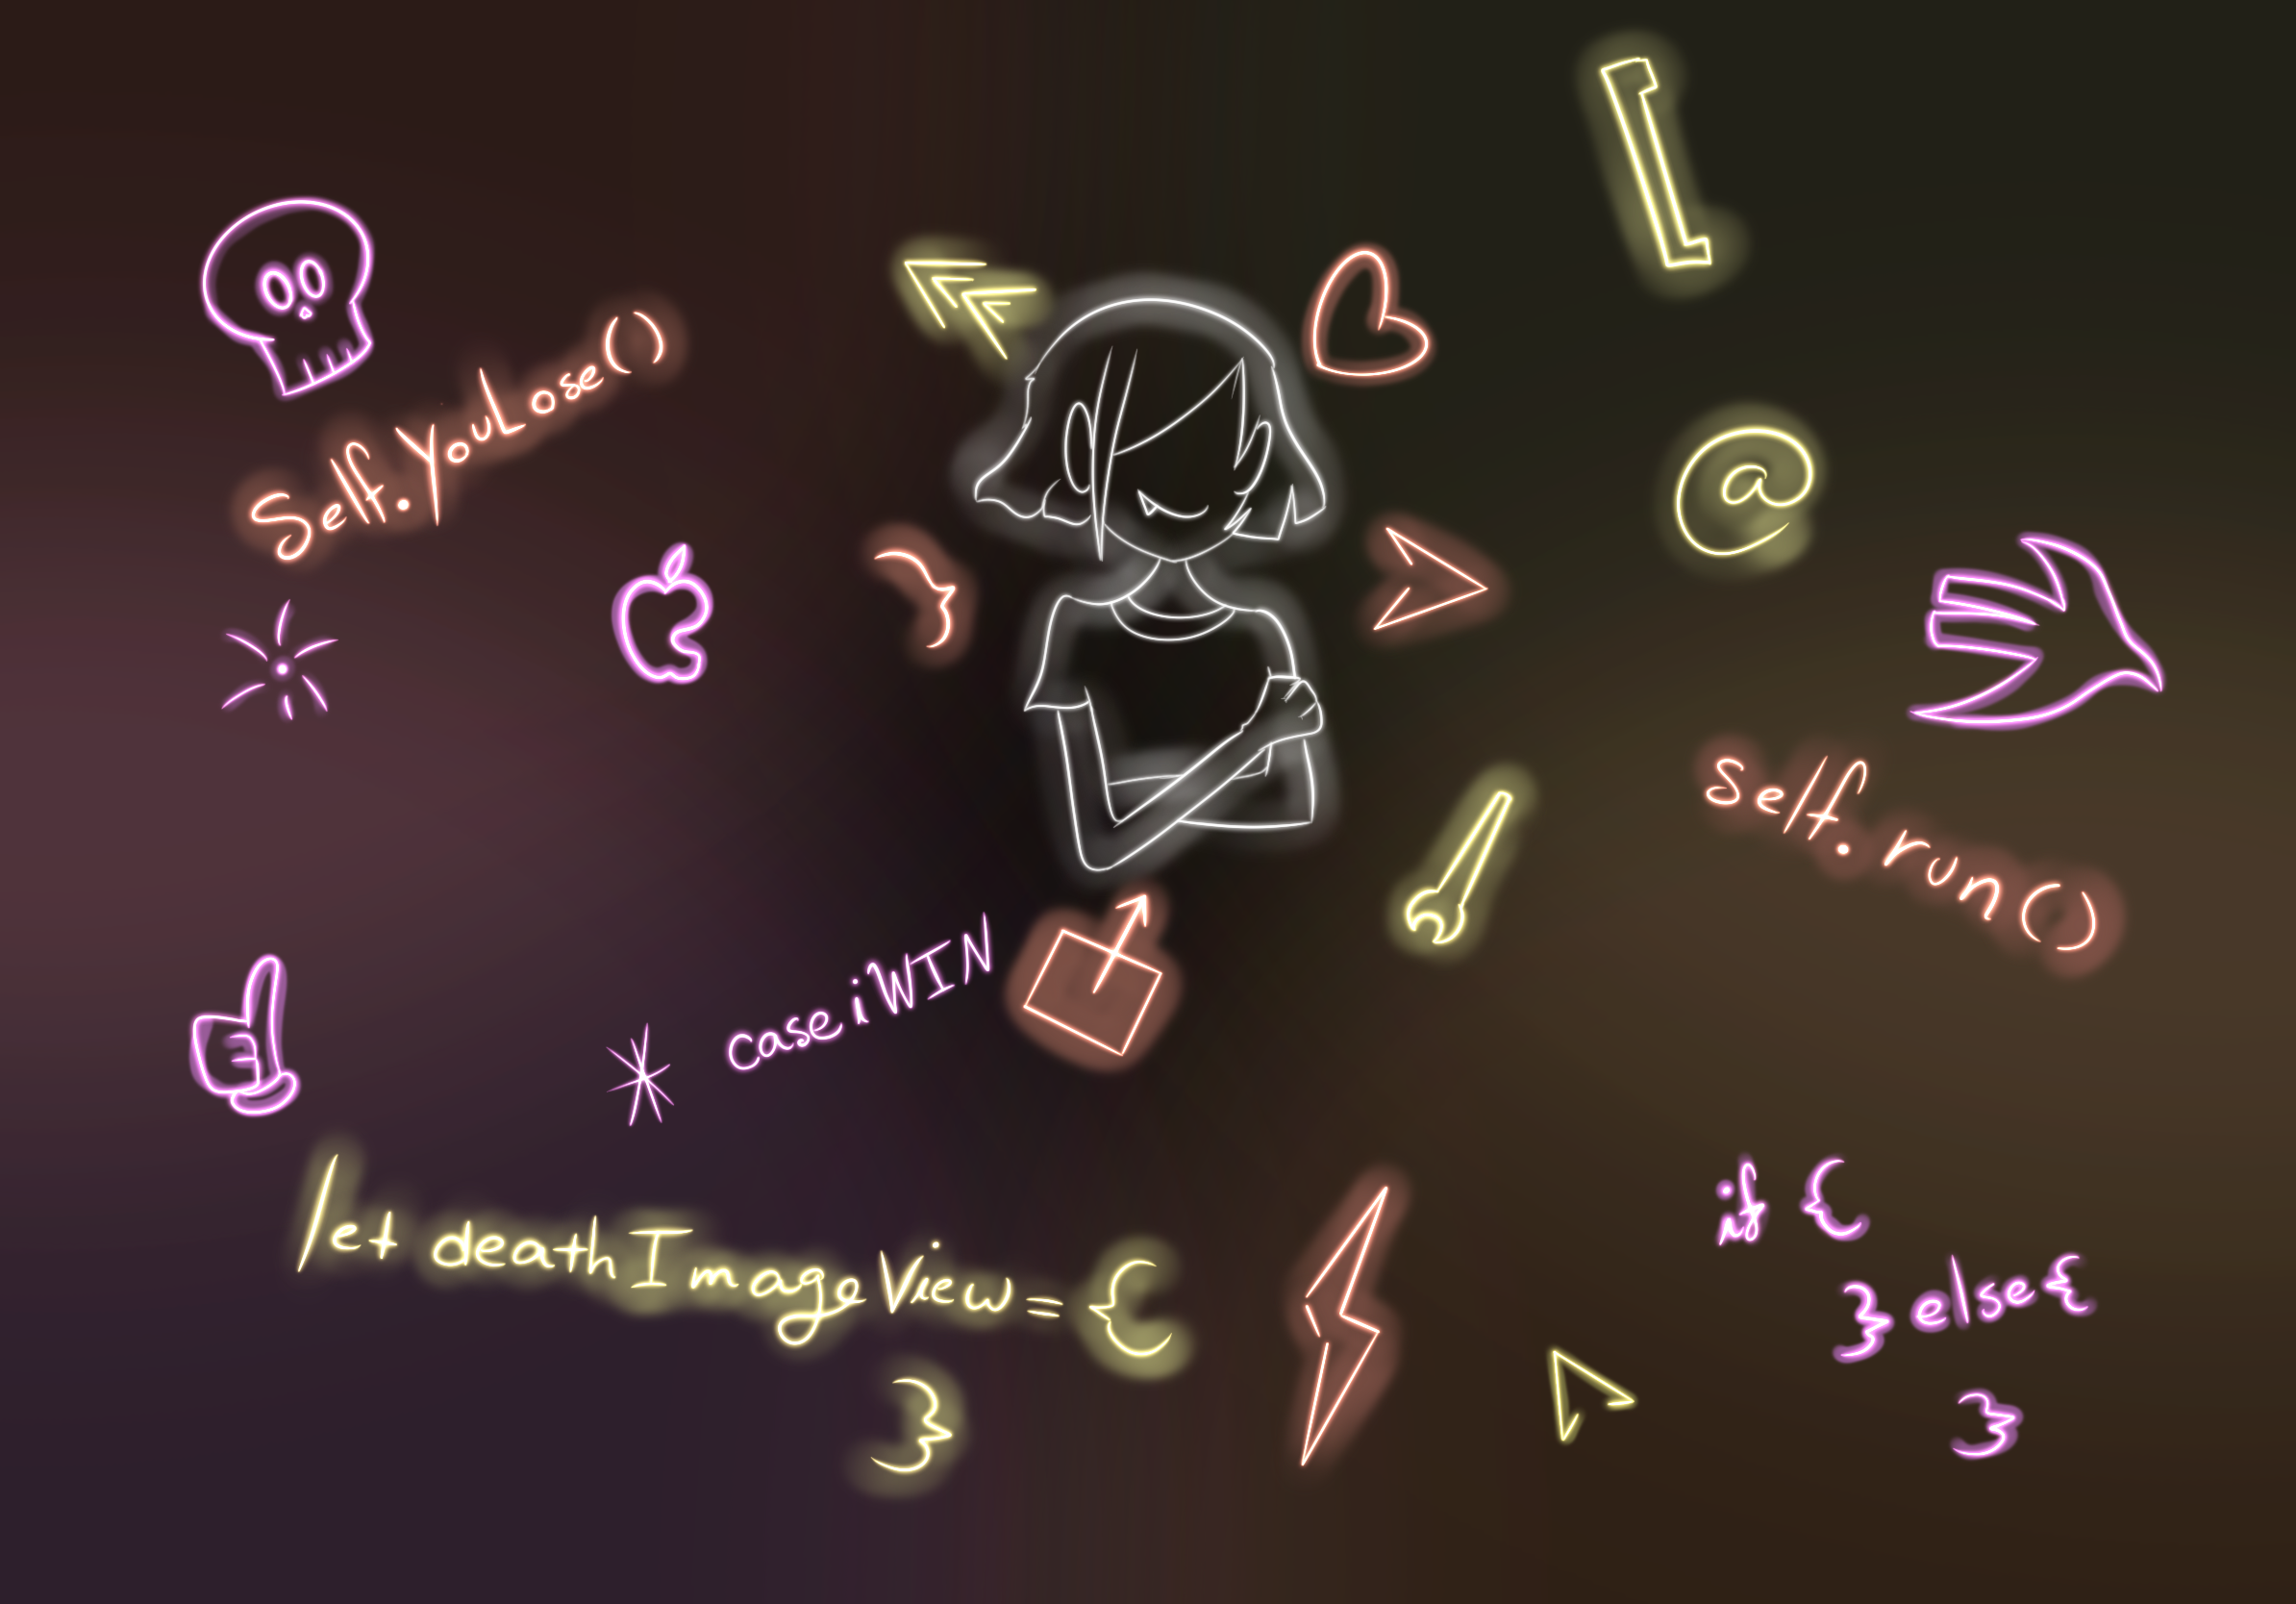 Self.YouLose()
@
}
self.run()
case iWIN
let deathImageView = {
}
if {
} else {
}
[